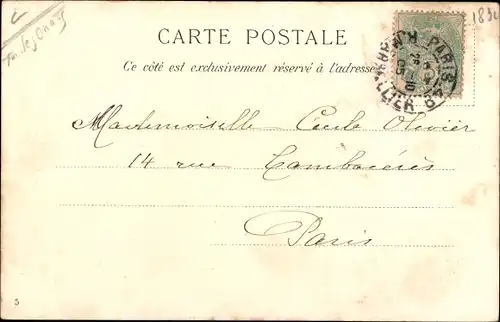 CARTE POSTALE
Ce côté est exclusivement réservé à l'adresse
Mademoiselle Cécile Olivier
14 rue Cambacérès
Paris
5
PARIS 84
05